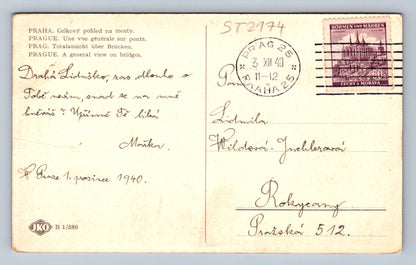 PRAHA. Celkový pohled na mosty.
PRAGUE. Une vue générale sur ponts.
PRAG. Totalansicht über Brücken.
PRAGUE. A general view on bridges.
ST2174
PRAG 25
3 XII 40
11-12
PRAHA 25
BÖHMEN UND MÄHREN
ČECHY A MORAVA
Drahá Liduško, sas dlouho o
Tobě nevím, snad se na mně
hněváš? Upřímně Tě líbá
Máňka.
V Praze 1. prosince 1940.
Paní
Ludmila
Rokycany
Pražská 512.
JKO B 1/380